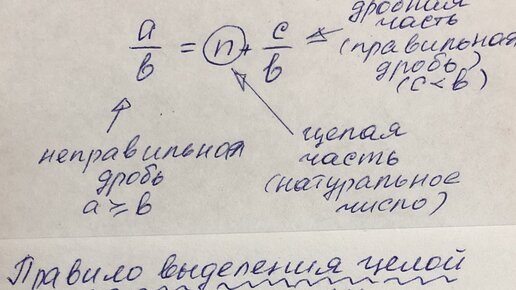 дробная
часть
(правильная
дробь)
(c < b)
a/b = n + c/b
неправильная
дробь
a ⩾ b
целая
часть
(натуральное
число)
Правило выделения целой